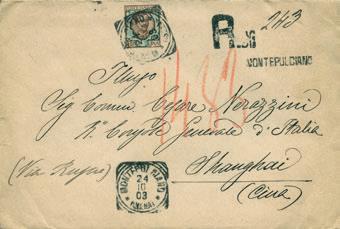 243
R
MONTEPULCIANO
Illmo
Sig. Comm. Cesare Nerazzini
R.º Console Generale d'Italia
Shanghai
(Cina)
(Via Suez)
MONTEPULCIANO
24
10
03
(SIENA)